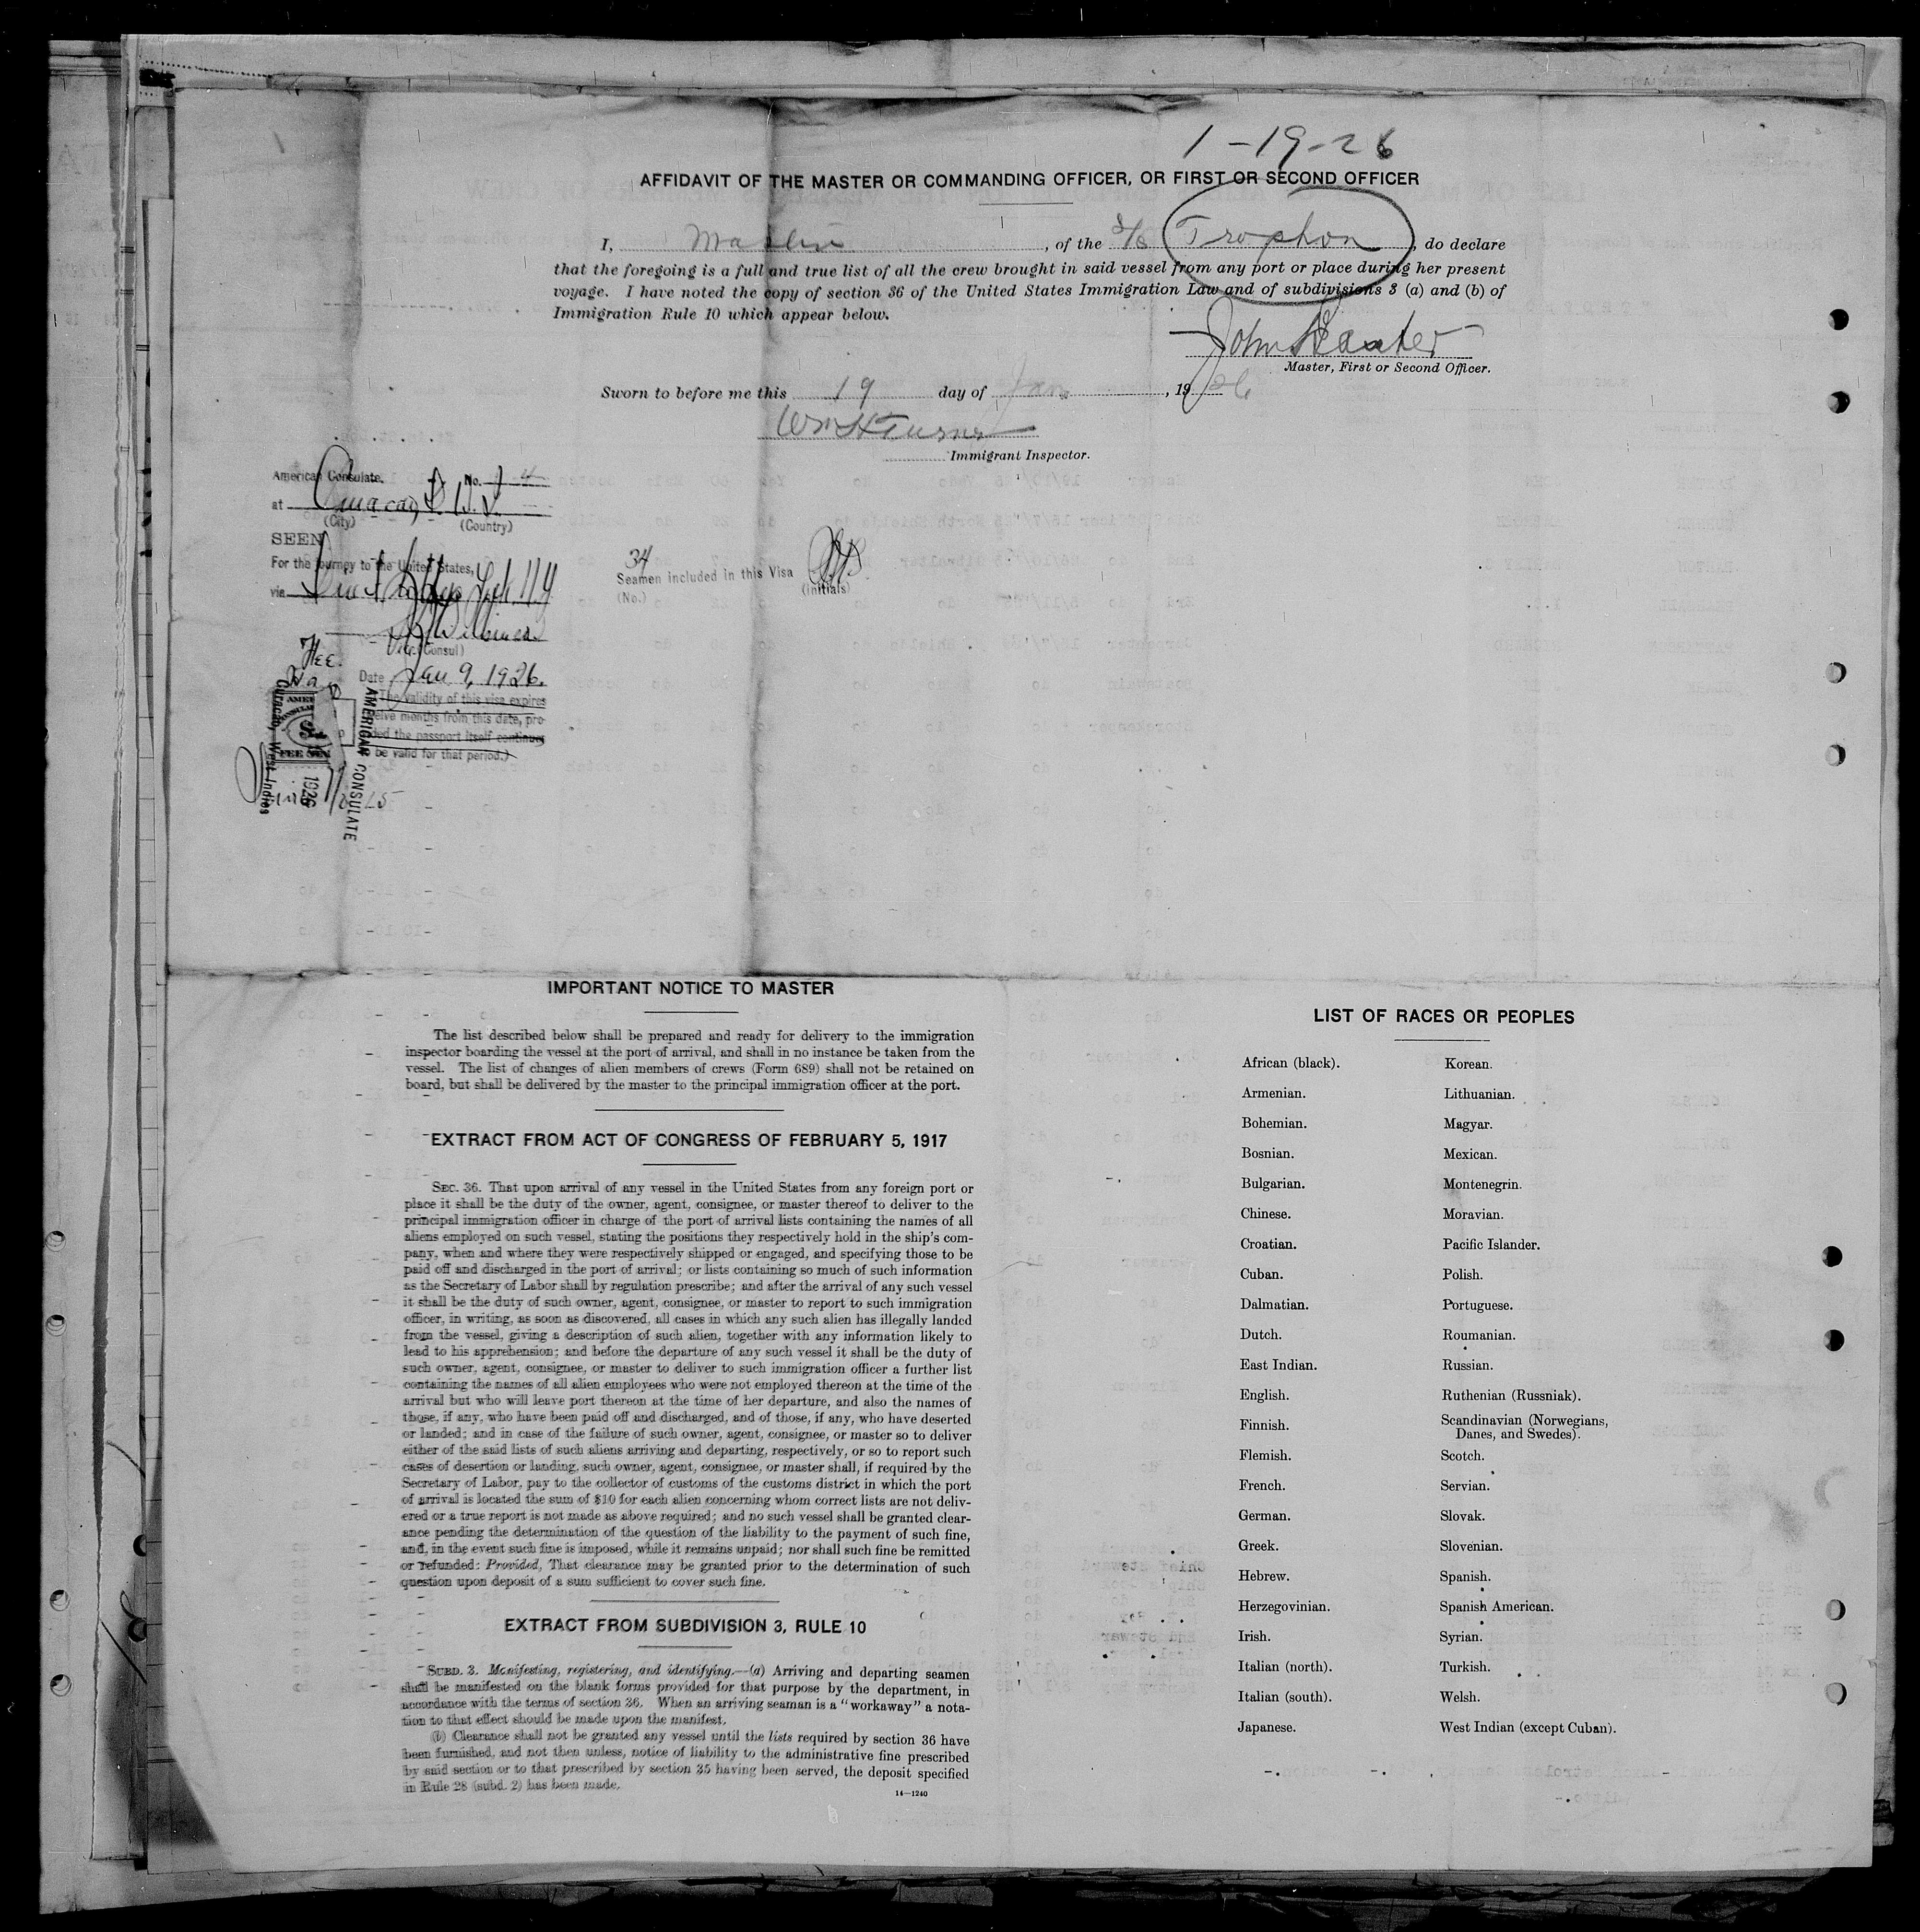 1-19-26
AFFIDAVIT OF THE MASTER OR COMMANDING OFFICER, OR FIRST OR SECOND OFFICER
I, Master, of the S/S Trophon, do declare
that the foregoing is a full and true list of all the crew brought in said vessel from any port or place during her present
voyage. I have noted the copy of section 36 of the United States Immigration Law and of subdivisions 3 (a) and (b) of
Immigration Rule 10 which appear below.
John
Master, First or Second Officer.
Sworn to before me this 19 day of Jan, 1926
Wm H Turner
Immigrant Inspector.
American Consulate. No.
at Curacao, D.W.I.
(City) (Country)
SEEN
For the journey to the United States,
via
34
Seamen included in this Visa
(No.) (Initials)
Vice Consul)
Fee
Date Jan 9, 1926.
(The validity of this visa expires
twelve months from this date, pro-
vided the passport itself continues
to be valid for that period.)
AMERICAN CONSULATE
Curacao, West Indies
1926
IMPORTANT NOTICE TO MASTER
The list described below shall be prepared and ready for delivery to the immigration
inspector boarding the vessel at the port of arrival, and shall in no instance be taken from the
vessel. The list of changes of alien members of crews (Form 689) shall not be retained on
board, but shall be delivered by the master to the principal immigration officer at the port.
EXTRACT FROM ACT OF CONGRESS OF FEBRUARY 5, 1917
SEC. 36. That upon arrival of any vessel in the United States from any foreign port or
place it shall be the duty of the owner, agent, consignee, or master thereof to deliver to the
principal immigration officer in charge of the port of arrival lists containing the names of all
aliens employed on such vessel, stating the positions they respectively hold in the ship's com-
pany, when and where they were respectively shipped or engaged, and specifying those to be
paid off and discharged in the port of arrival; or lists containing so much of such information
as the Secretary of Labor shall by regulation prescribe; and after the arrival of any such vessel
it shall be the duty of such owner, agent, consignee, or master to report to such immigration
officer, in writing, as soon as discovered, all cases in which any such alien has illegally landed
from the vessel, giving a description of such alien, together with any information likely to
lead to his apprehension; and before the departure of any such vessel it shall be the duty of
such owner, agent, consignee, or master to deliver to such immigration officer a further list
containing the names of all alien employees who were not employed thereon at the time of the
arrival but who will leave port thereon at the time of her departure, and also the names of
those, if any, who have been paid off and discharged, and of those, if any, who have deserted
or landed; and in case of the failure of such owner, agent, consignee, or master so to deliver
either of the said lists of such aliens arriving and departing, respectively, or so to report such
cases of desertion or landing, such owner, agent, consignee, or master shall, if required by the
Secretary of Labor, pay to the collector of customs of the customs district in which the port
of arrival is located the sum of $10 for each alien concerning whom correct lists are not deliv-
ered or a true report is not made as above required; and no such vessel shall be granted clear-
ance pending the determination of the question of the liability to the payment of such fine,
and, in the event such fine is imposed, while it remains unpaid; nor shall such fine be remitted
or refunded: Provided, That clearance may be granted prior to the determination of such
question upon deposit of a sum sufficient to cover such fine.
EXTRACT FROM SUBDIVISION 3, RULE 10
SUBD. 3. Manifesting, registering, and identifying.—(a) Arriving and departing seamen
shall be manifested on the blank forms provided for that purpose by the department, in
accordance with the terms of section 36. When an arriving seaman is a "workaway" a nota-
tion to that effect should be made upon the manifest.
(b) Clearance shall not be granted any vessel until the lists required by section 36 have
been furnished, and not then unless, notice of liability to the administrative fine prescribed
by said section or to that prescribed by section 35 having been served, the deposit specified
in Rule 28 (subd. 2) has been made.
14—1240
LIST OF RACES OR PEOPLES
African (black). Korean.
Armenian. Lithuanian.
Bohemian. Magyar.
Bosnian. Mexican.
Bulgarian. Montenegrin.
Chinese. Moravian.
Croatian. Pacific Islander.
Cuban. Polish.
Dalmatian. Portuguese.
Dutch. Roumanian.
East Indian. Russian.
English. Ruthenian (Russniak).
Finnish. Scandinavian (Norwegians,
Danes, and Swedes).
Flemish. Scotch.
French. Servian.
German. Slovak.
Greek. Slovenian.
Hebrew. Spanish.
Herzegovinian. Spanish American.
Irish. Syrian.
Italian (north). Turkish.
Italian (south). Welsh.
Japanese. West Indian (except Cuban).